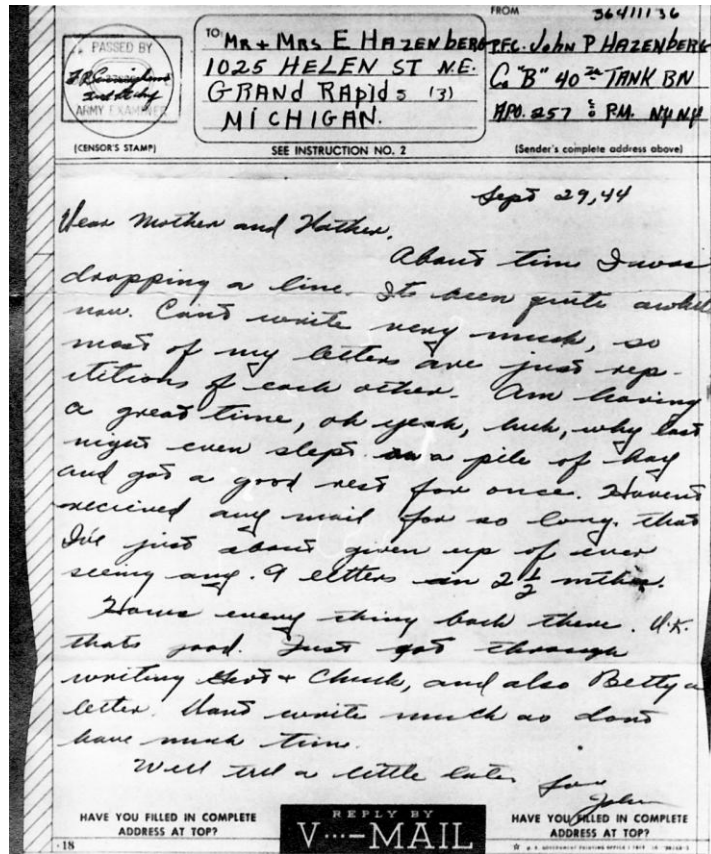 FROM
36411136
PASSED BY
ARMY EXAMINER
(CENSOR'S STAMP)
TO MR + MRS E HAZENBERG
1025 HELEN ST N.E.
GRAND RAPIDS (3)
MICHIGAN.
SEE INSTRUCTION NO. 2
PFC. John P HAZENBERG
Co "B" 40 TANK BN
APO. 257 % P.M. NY NY
(Sender's complete address above)
Sept 29, 44
Dear Mother and Father,
About time I was
dropping a line. Its been quite awhile
now. Cant write very much, so
most of my letters are just rep-
etitions of each other. Am having
a great time, oh yeah, huh, why last
night even slept in a pile of hay
and got a good rest for once. Havent
recieved any mail for so long that
I've just about given up of ever
seeing any. 9 letters in 2 1/2 mths.
Hows every thing back there. O.K.
thats good. Just got through
writing Gert + Chuck, and also Betty a
letter. Cant write much as dont
have much time.
Well till a little later
John
HAVE YOU FILLED IN COMPLETE
ADDRESS AT TOP?
REPLY BY
V···–MAIL
HAVE YOU FILLED IN COMPLETE
ADDRESS AT TOP?
18